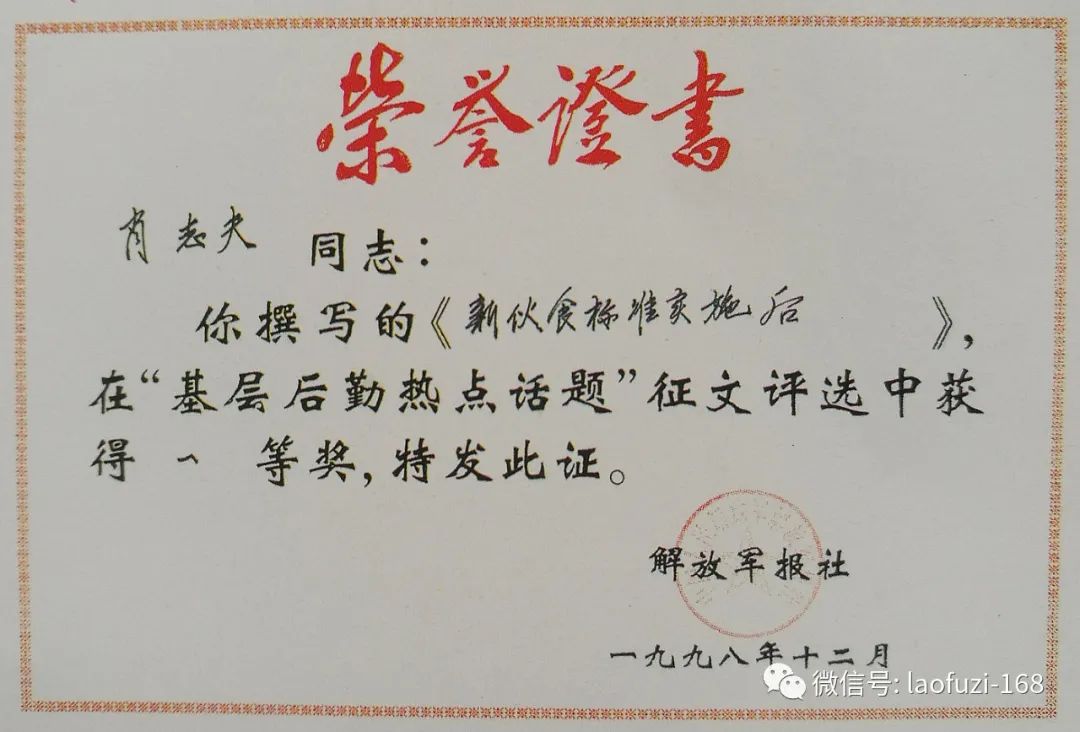 榮誉證書
肖志夫 同志：
你撰写的《新伙食标准实施后》，
在“基层后勤热点话题”征文评选中获
得 一 等奖，特发此证。
解放军报社
一九九八年十二月
微信号: laofuzi-168